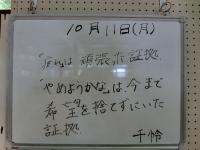 10月11日(月)
「疲れ」は頑張った証拠。
「やめようかな」は、今まで
希望を捨てずにいた
証拠。
千怜